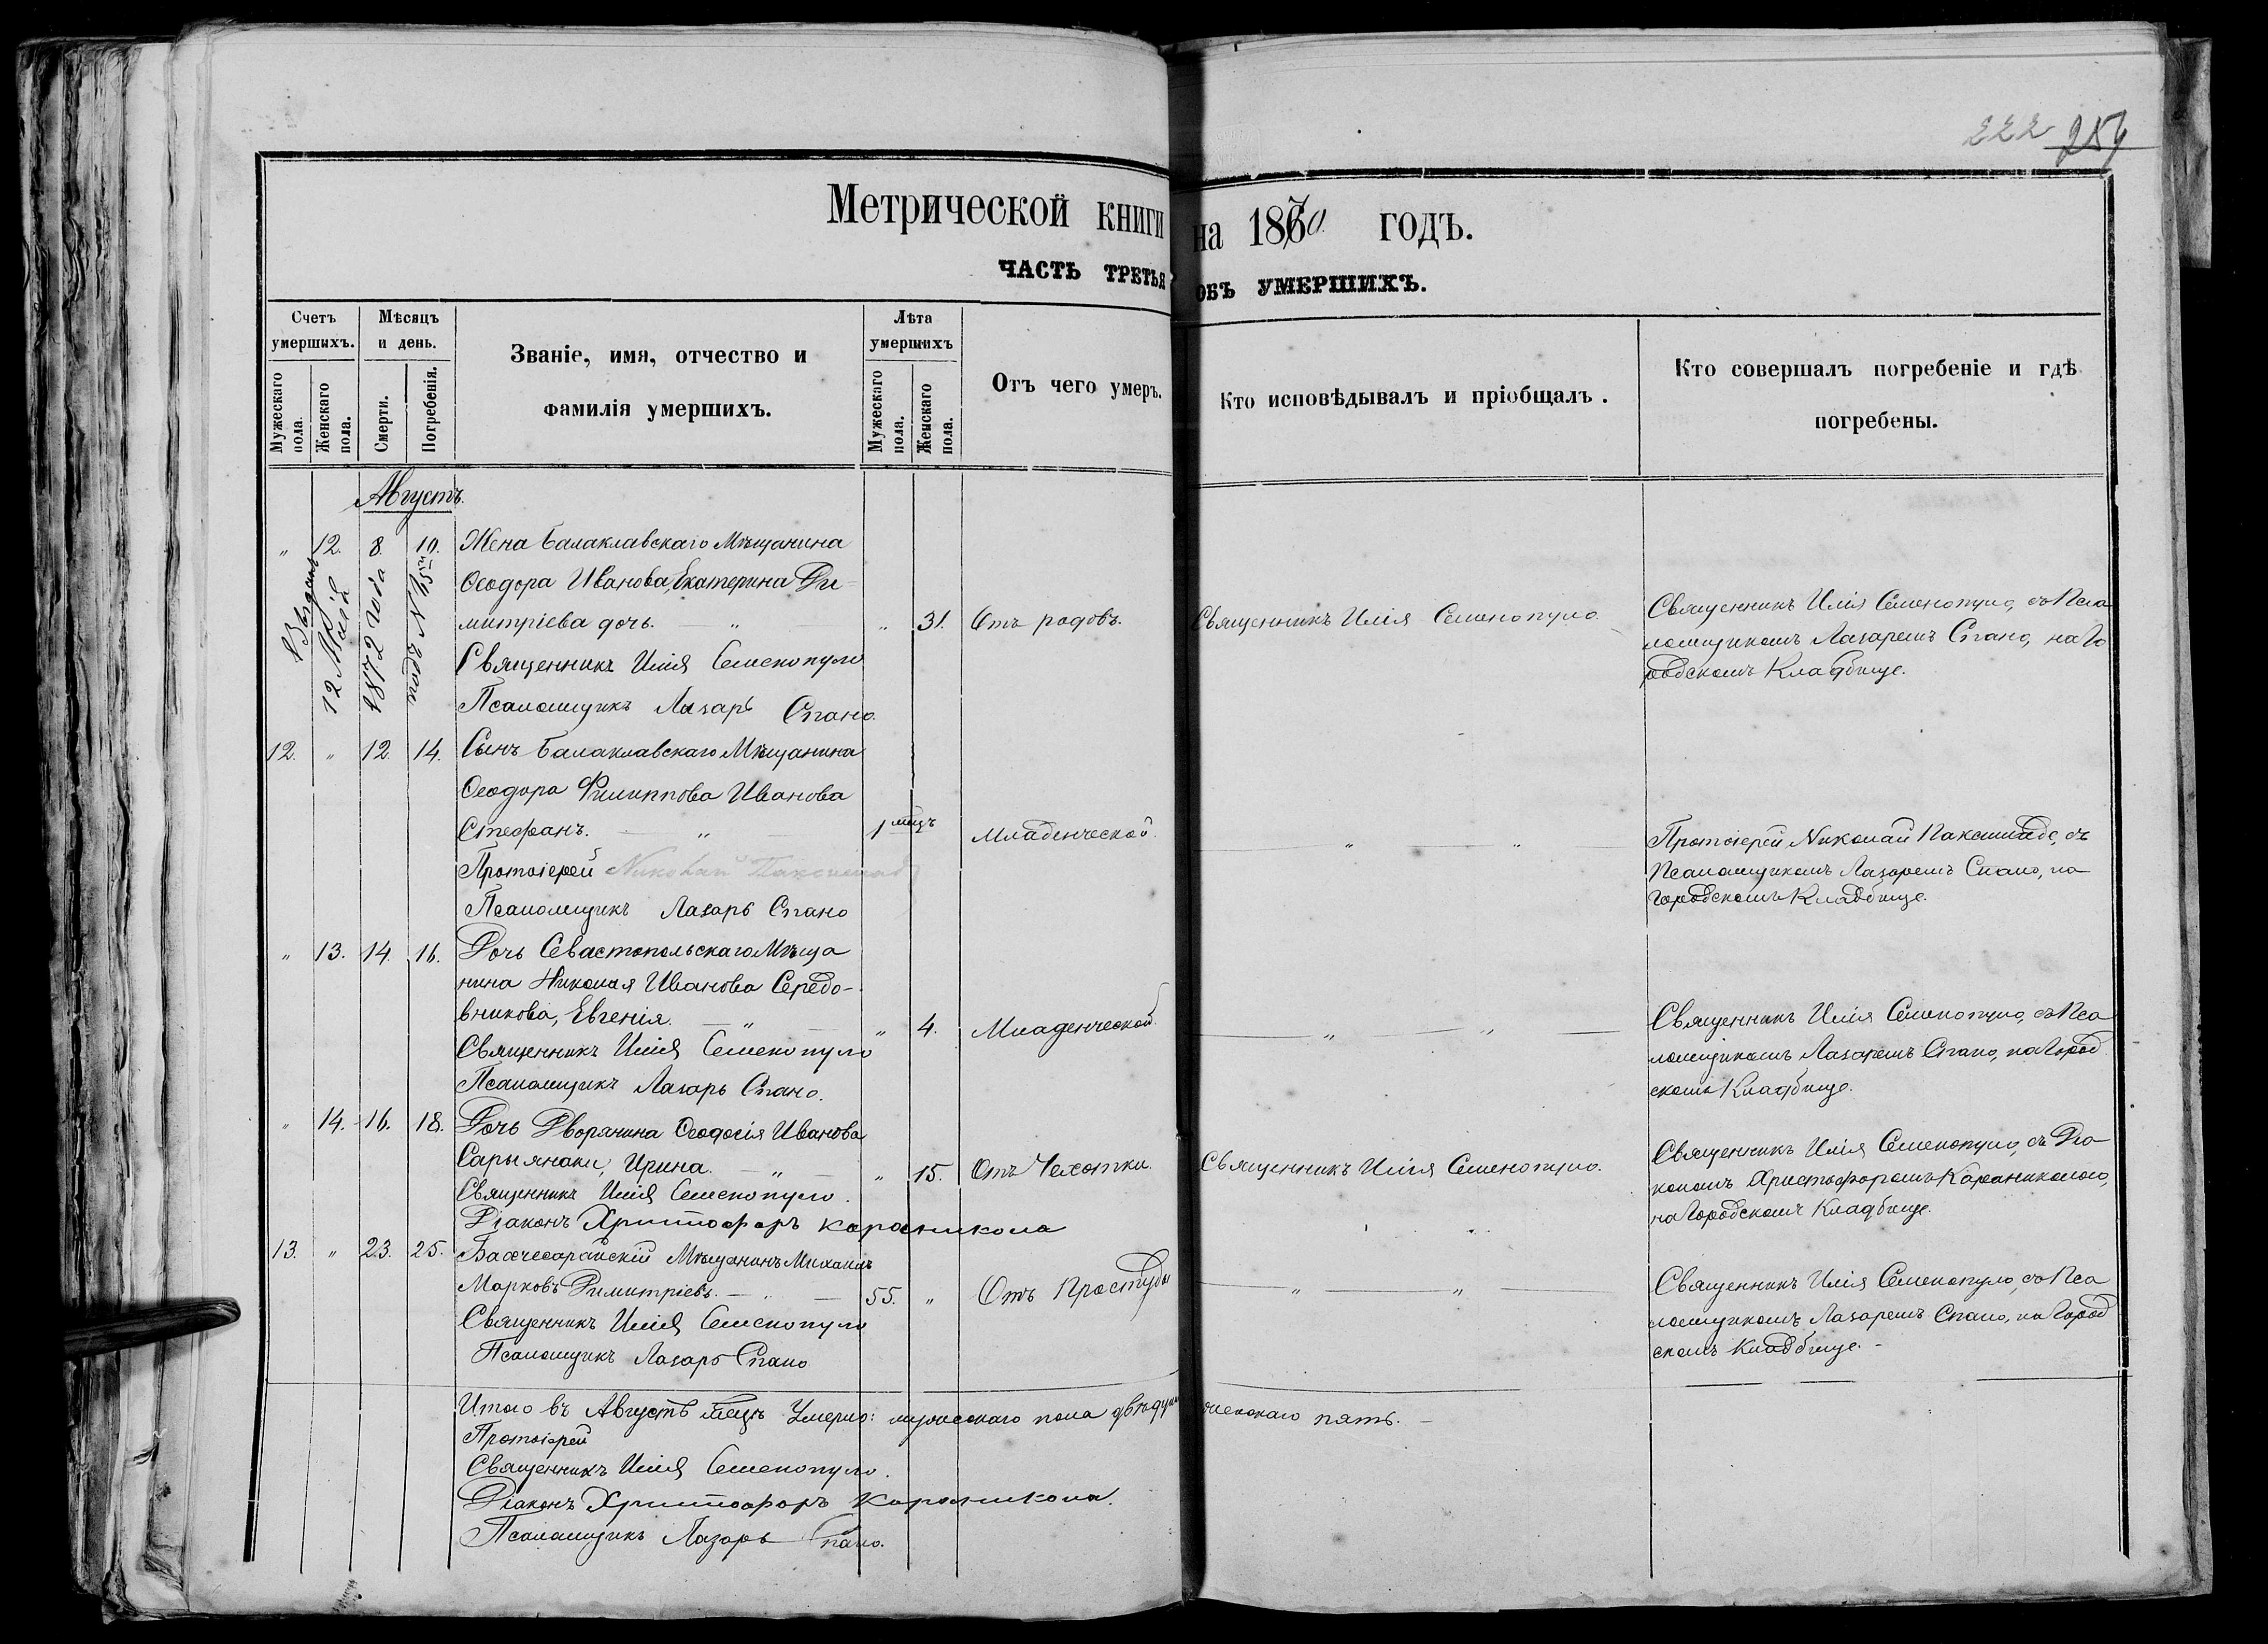 222 254
Метрической книги на 1870 годъ.
ЧАСТЬ ТРЕТЬЯ ОБЪ УМЕРШИХЪ.
Счетъ умершихъ.
Мужескаго пола.
Женскаго пола.
Мѣсяцъ и день.
Смерти.
Погребенія.
Званіе, имя, отчество и
фамилія умершихъ.
Лѣта умершихъ
Мужескаго пола.
Женскаго пола.
Отъ чего умеръ.
Кто исповѣдывалъ и пріобщалъ.
Кто совершалъ погребеніе и гдѣ
погребены.
Августъ.
" 12. 8. 10. Жена Балаклавскаго Мѣщанина
Ѳеодора Иванова, Екатерина Ди-
митріева дочь. — " " 31. Отъ родовъ. Священникъ Илія Семенопуло.
Священникъ Илія Семенопуло, съ Пса
ломщикомъ Лазаремъ Спано, на Го
родскомъ Кладбище.
Священникъ Илія Семенопуло
Псаломщикъ Лазарь Спано.
12 Маія
1872 года
подъ №
12. " 12. 14. Сынъ Балаклавскаго Мѣщанина
Ѳеодора Филиппова Иванова
Стефанъ. — " — 1 мцъ Младенческой. — " — "
Протоіерей Николай Паксимаде, съ
Псаломщикомъ Лазаремъ Спано, на
Городскомъ Кладбище.
Протоіерей Николай Паксимад
Псаломщикъ Лазарь Спано
" 13. 14. 16. Дочь Севастопольскаго Мѣща
нина Николая Иванова Середо-
вникова, Евгенія. — " — " 4. Младенческой. — " — " —
Священникъ Илія Семенопуло, съ Пса
ломщикомъ Лазаремъ Спано, на Город
скомъ Кладбище.
Священникъ Илія Семенопуло
Псаломщикъ Лазарь Спано.
" 14. 16. 18. Дочь Дворянина Ѳеодосія Иванова
Сарыянаки, Ирина. — " — " 15. Отъ Чахотки. Священникъ Илія Семенопуло.
Священникъ Илія Семенопуло, съ Діа
кономъ Христофоромъ Караниколою,
на Городскомъ Кладбище.
Священникъ Илія Семенопуло.
Діаконъ Христофоръ Караникола
13. " 23. 25. Бахчесарайскій Мѣщанинъ Михаилъ
Марковъ Димитріевъ. — " — 55. " Отъ Простуды — " — " —
Священникъ Илія Семенопуло, съ Пса
ломщикомъ Лазаремъ Спано, на Город
скомъ Кладбище. -
Священникъ Илія Семенопуло
Псаломщикъ Лазарь Спано
Итого въ Августѣ мцѣ Умерло: мужескаго пола двѣ души женскаго пять. —
Протоіерей
Священникъ Илія Семенопуло.
Діаконъ Христофоръ Караникола.
Псаломщикъ Лазарь Спано.